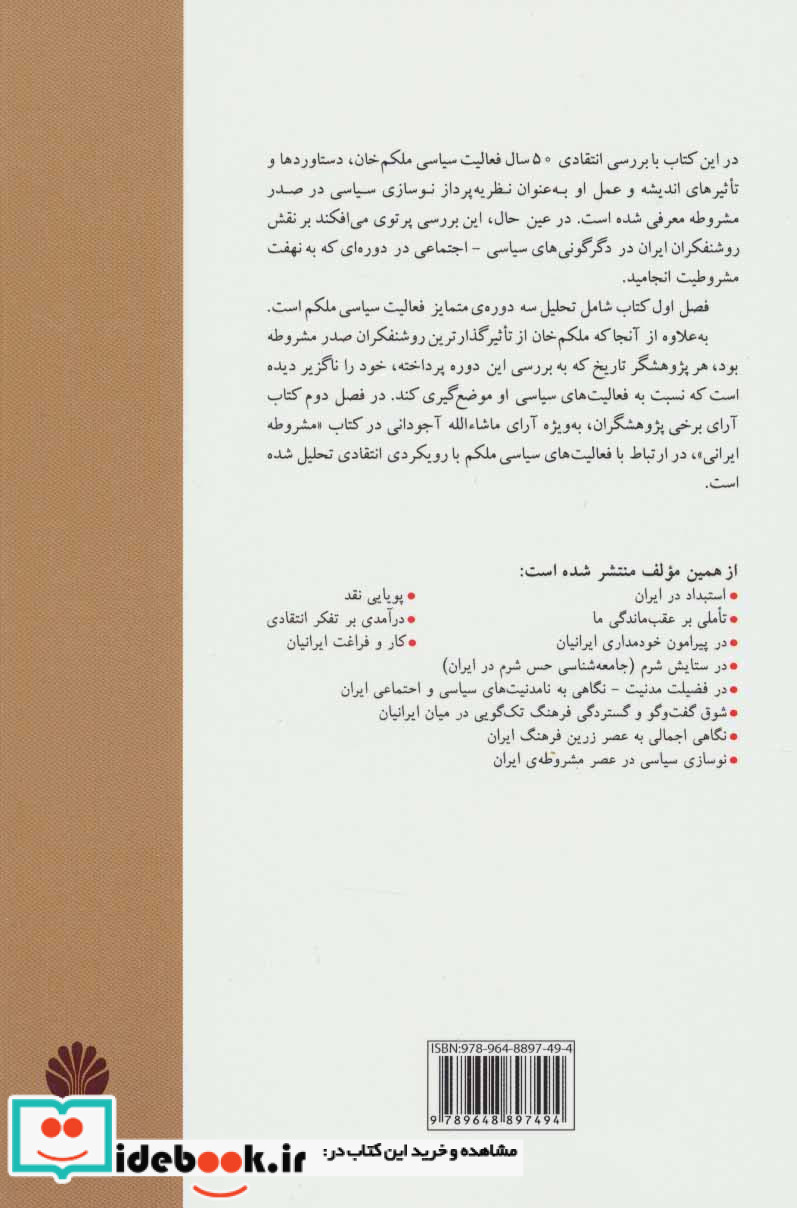 در این کتاب با بررسی انتقادی ۵۰ سال فعالیت سیاسی ملکم‌خان، دستاوردها و
تأثیرهای اندیشه و عمل او به‌عنوان نظریه‌پرداز نوسازی سیاسی در صدر
مشروطه معرفی شده است. در عین حال، این بررسی پرتوی می‌افکند بر نقش
روشنفکران ایران در دگرگونی‌های سیاسی - اجتماعی در دوره‌ای که به نهفت
مشروطیت انجامید.
فصل اول کتاب شامل تحلیل سه دوره‌ی متمایز فعالیت سیاسی ملکم است.
به‌علاوه از آنجا که ملکم‌خان از تأثیرگذارترین روشنفکران صدر مشروطه
بود، هر پژوهشگر تاریخ که به بررسی این دوره پرداخته، خود را ناگزیر دیده
است که نسبت به فعالیت‌های سیاسی او موضع‌گیری کند. در فصل دوم کتاب
آرای برخی پژوهشگران، به‌ویژه آرای ماشاءالله آجودانی در کتاب «مشروطه
ایرانی»، در ارتباط با فعالیت‌های سیاسی ملکم با رویکردی انتقادی تحلیل شده
است.
از همین مؤلف منتشر شده است:
• استبداد در ایران
• پویایی نقد
• تأملی بر عقب‌ماندگی ما
• درآمدی بر تفکر انتقادی
• در پیرامون خودمداری ایرانیان
• کار و فراغت ایرانیان
• در ستایش شرم (جامعه‌شناسی حس شرم در ایران)
• در فضیلت مدنیت - نگاهی به نامدنیت‌های سیاسی و احتماعی ایران
• شوق گفت‌وگو و گستردگی فرهنگ تک‌گویی در میان ایرانیان
• نگاهی اجمالی به عصر زرین فرهنگ ایران
• نوسازی سیاسی در عصر مشروطه‌ی ایران
ISBN:978-964-8897-49-4
9 789648 897494
مشاهده و خرید این کتاب در:
idebook.ir